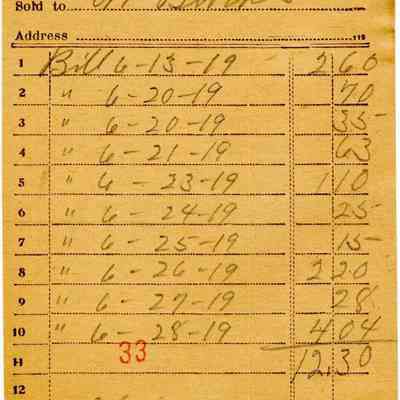 Sold to
Address
1 Bill 6-13-19 2 60
2 " 6-20-19 70
3 " 6-20-19 35
4 " 6-21-19 63
5 " 6-23-19 1 10
6 " 6-24-19 25
7 " 6-25-19 15
8 " 6-26-19 2 20
9 " 6-27-19 28
10 " 6-28-19 4 04
11 33 12.30
12